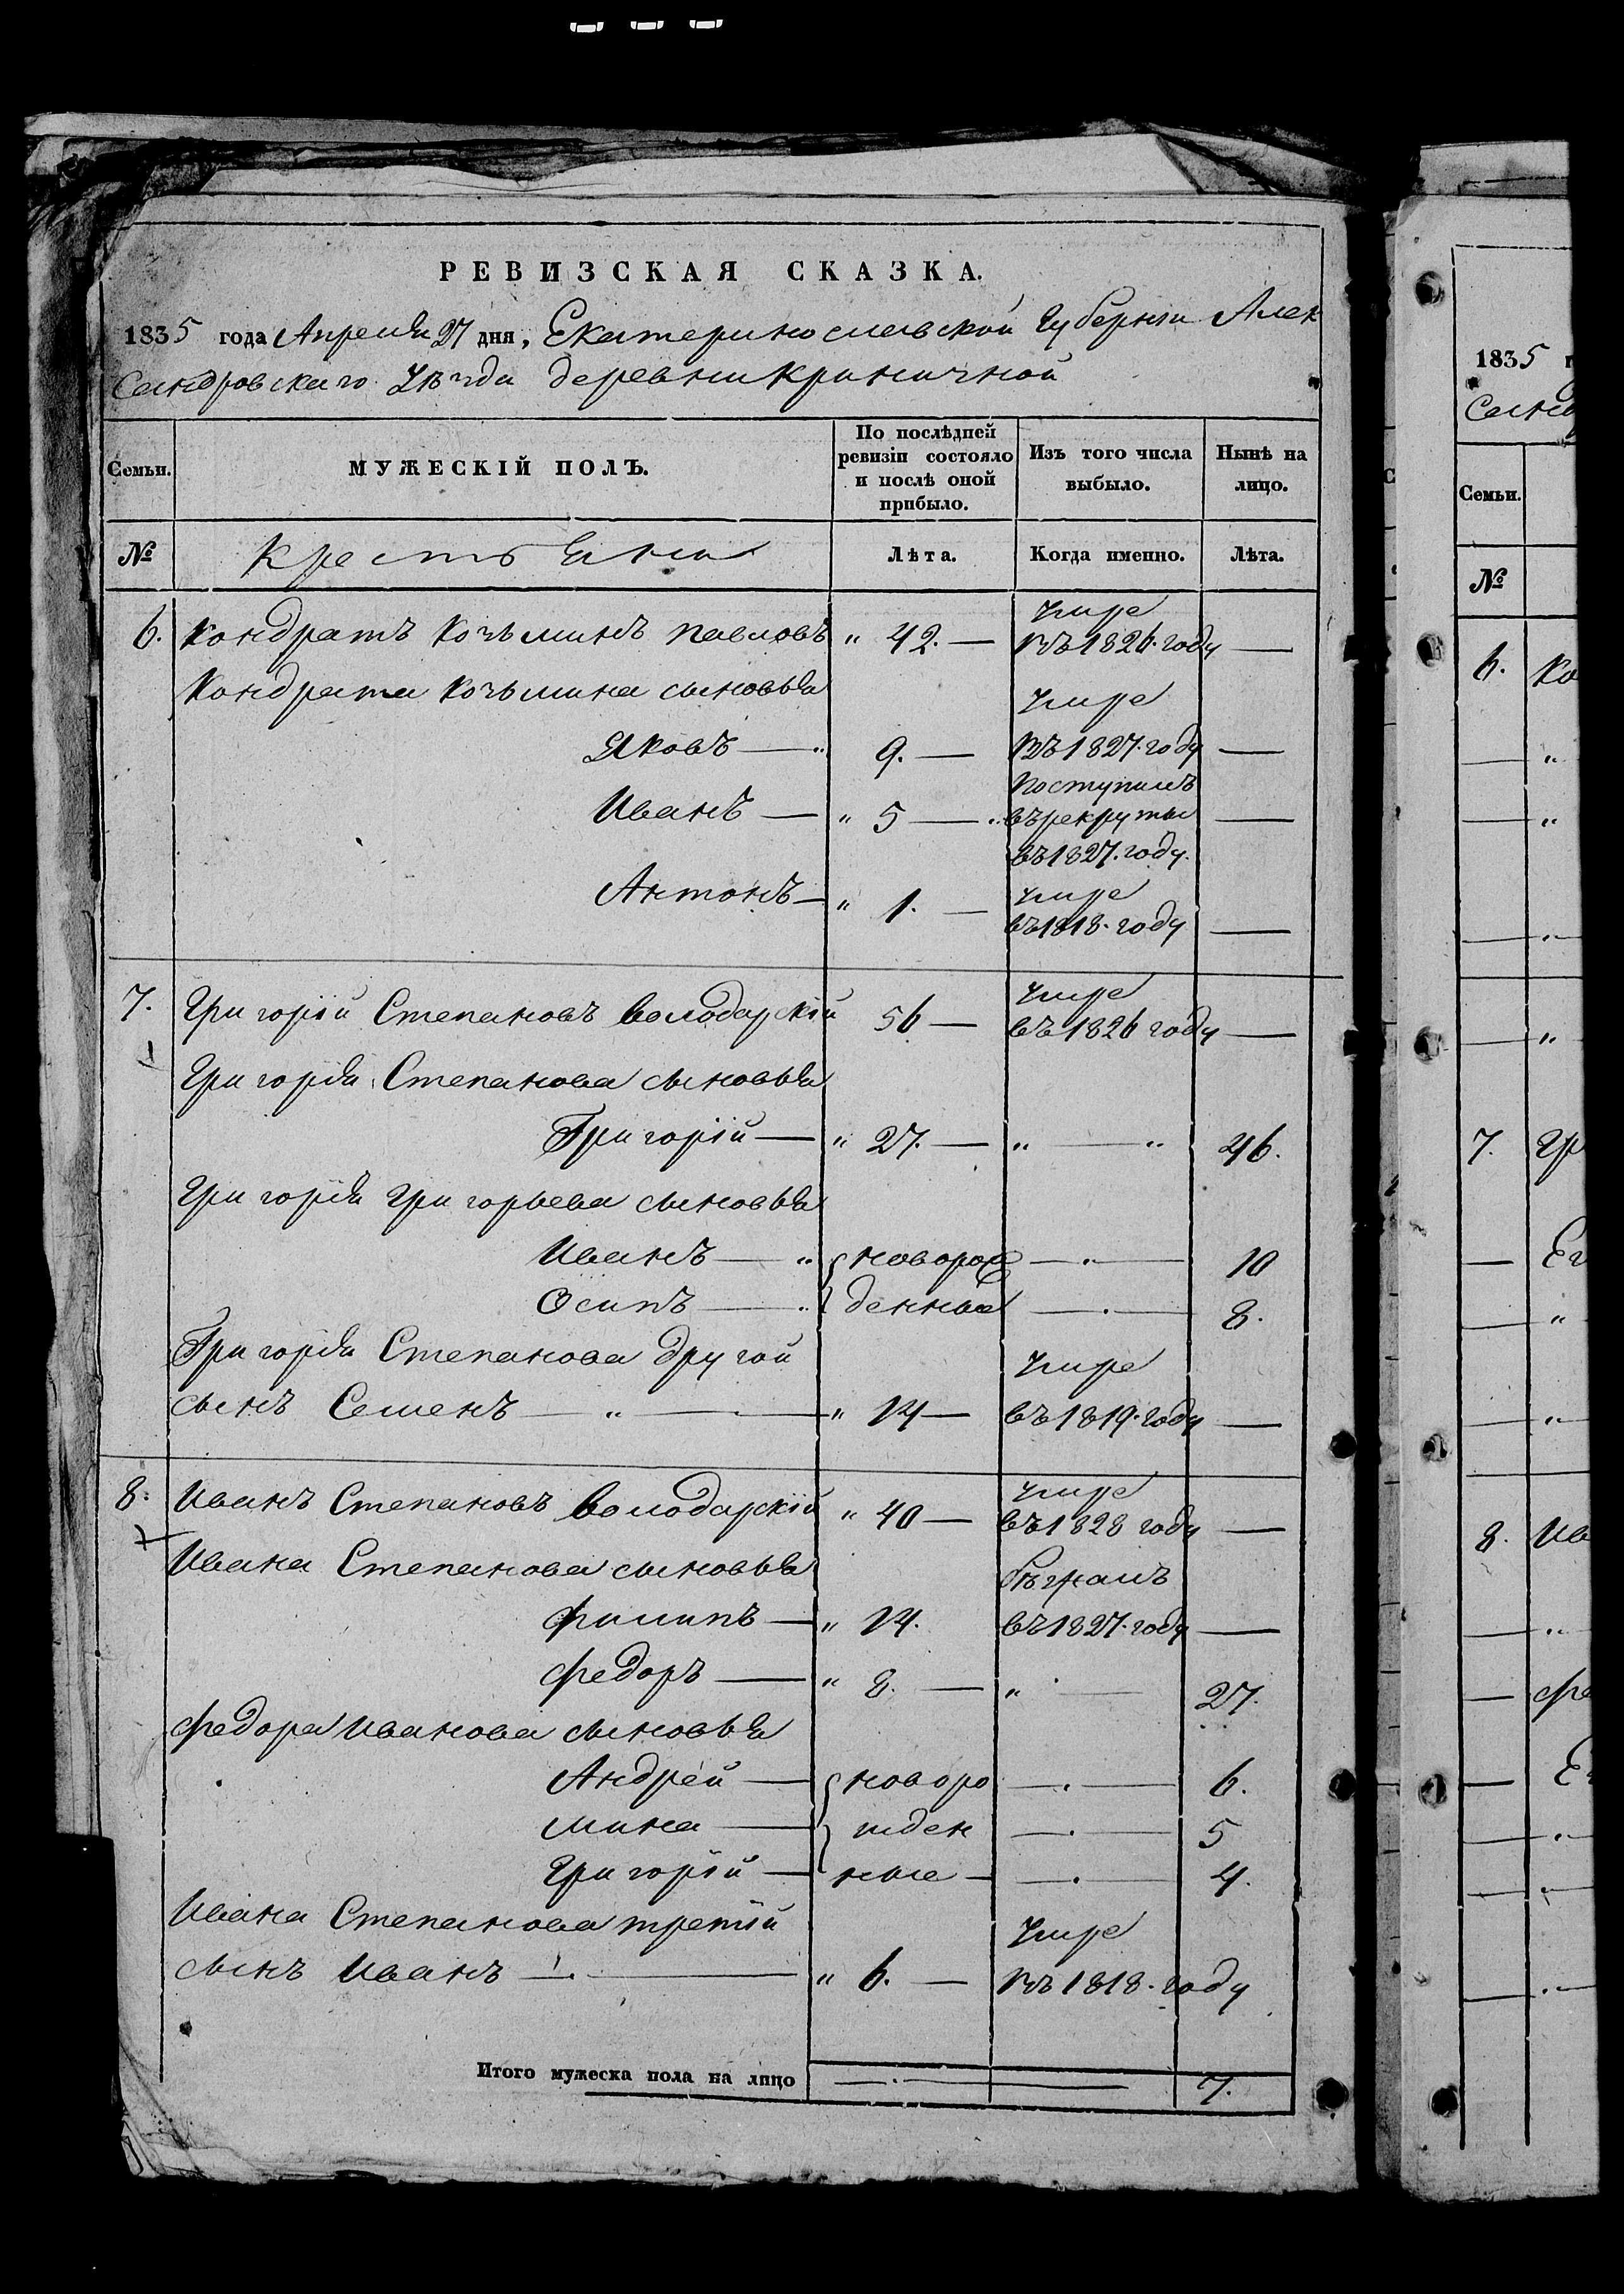 РЕВИЗСКАЯ СКАЗКА.
1835 года Апреля 27 дня, Екатеринославской Губернии Алек
сандровскаго Уѣзда деревни Криничной
Семьи.
МУЖЕСКІЙ ПОЛЪ.
По послѣдней ревизіи состояло и послѣ оной прибыло.
Изъ того числа выбыло.
Нынѣ на лицо.
№
Крестьяни
Лѣта.
Когда именно.
Лѣта.
6. Кондратъ Козьминъ Павловъ " 42. — умре въ 1826. году —
Кондрата Козьмина сыновья
Яковъ — " 9. — умре въ 1827. году —
Иванъ — " 5 — " Поступилъ въ рекруты въ 1827. году. —
Антонъ — " 1. — умре въ 1818. году —
7. Григорій Степановъ Володарскій 56 — умре въ 1826 году —
Григорія Степанова сыновья
Григорій — " 27. — " — " 46.
Григорія Григорьева сыновья
Иванъ — " новорож — " — 10
Осипъ — " денные — " — 8.
Григорія Степанова другой
сынъ Семенъ — " — " 14 — умре въ 1819. году —
8. Иванъ Степановъ Володарскій " 40 — умре въ 1828 году —
Ивана Степанова сыновья
Филипъ — " 14. бѣжалъ въ 1827. году —
Федоръ — " 8. — " — 27.
Федора Иванова сыновья
Андрей — новоро — . — 6.
Мина — жден — . — 5
Григорій — ные — — . — 4.
Ивана Степанова третій
сынъ Иванъ — . — " 6. — умре въ 1818. году
Итого мужеска пола на лицо — . — 7.
1835
Санд
Семьи.
№
6. Ко
"
"
"
"
7. Гр
"
"
8. Ив
"
"